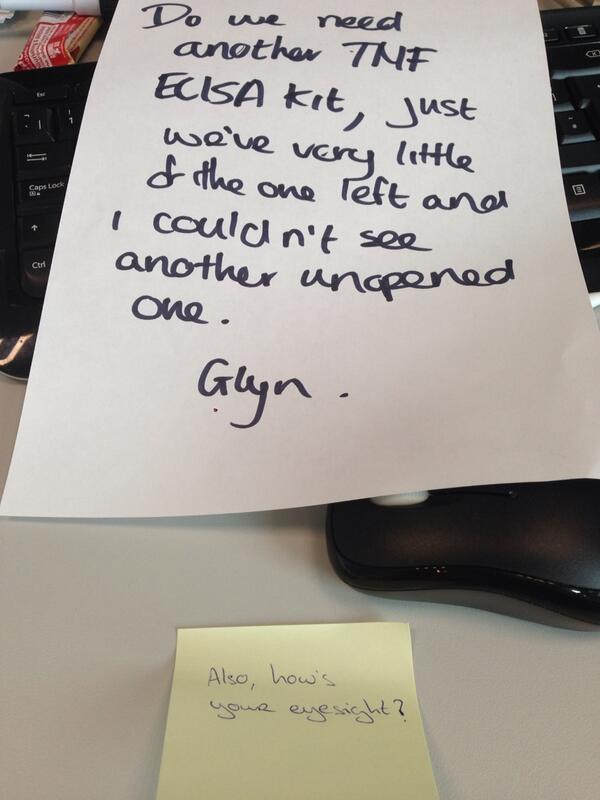 Do we need
another TNF
ELISA kit, just
we've very little
of the one left and
I couldn't see
another unopened
one.
Glyn.
Also, how's
your eyesight?
Esc
Caps Lock
Ctrl